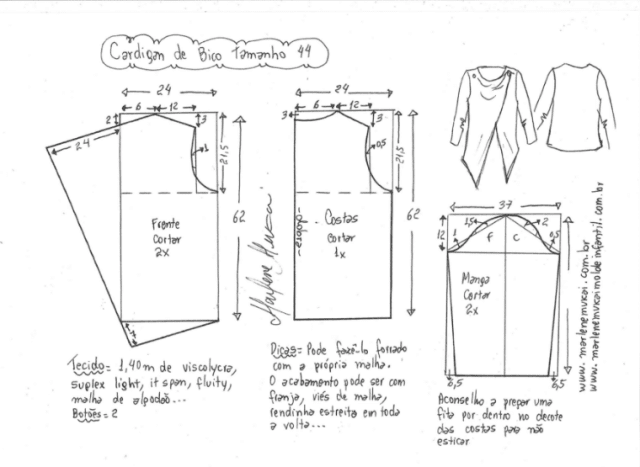 Cardigan de Bico Tamanho 44
24
6
12
2
3
24
1
21,5
62
Frente
Cortar
2x
24
6
12
3
3
0,5
21,5
62
-dobra-
-esgoto-
Costas
cortar
1x
Marlene Mukai
37
12
1,5
2
1
0,5
F
C
Manga
Cortar
2x
0,5
0,5
www.marlenemukai.com.br
www.marlenemukaimoldeinfantil.com.br
Tecido= 1,40m de viscolycra,
suplex light, it span, fluity,
malha de algodão...
Botões= 2
Dicas= Pode fazê-lo forrado
com a própria malha.
O acabamento pode ser com
franja, viés de malha,
rendinha estreita em toda
a volta...
Aconselho a prepar uma
fita por dentro no decote
das costas pao não
esticar